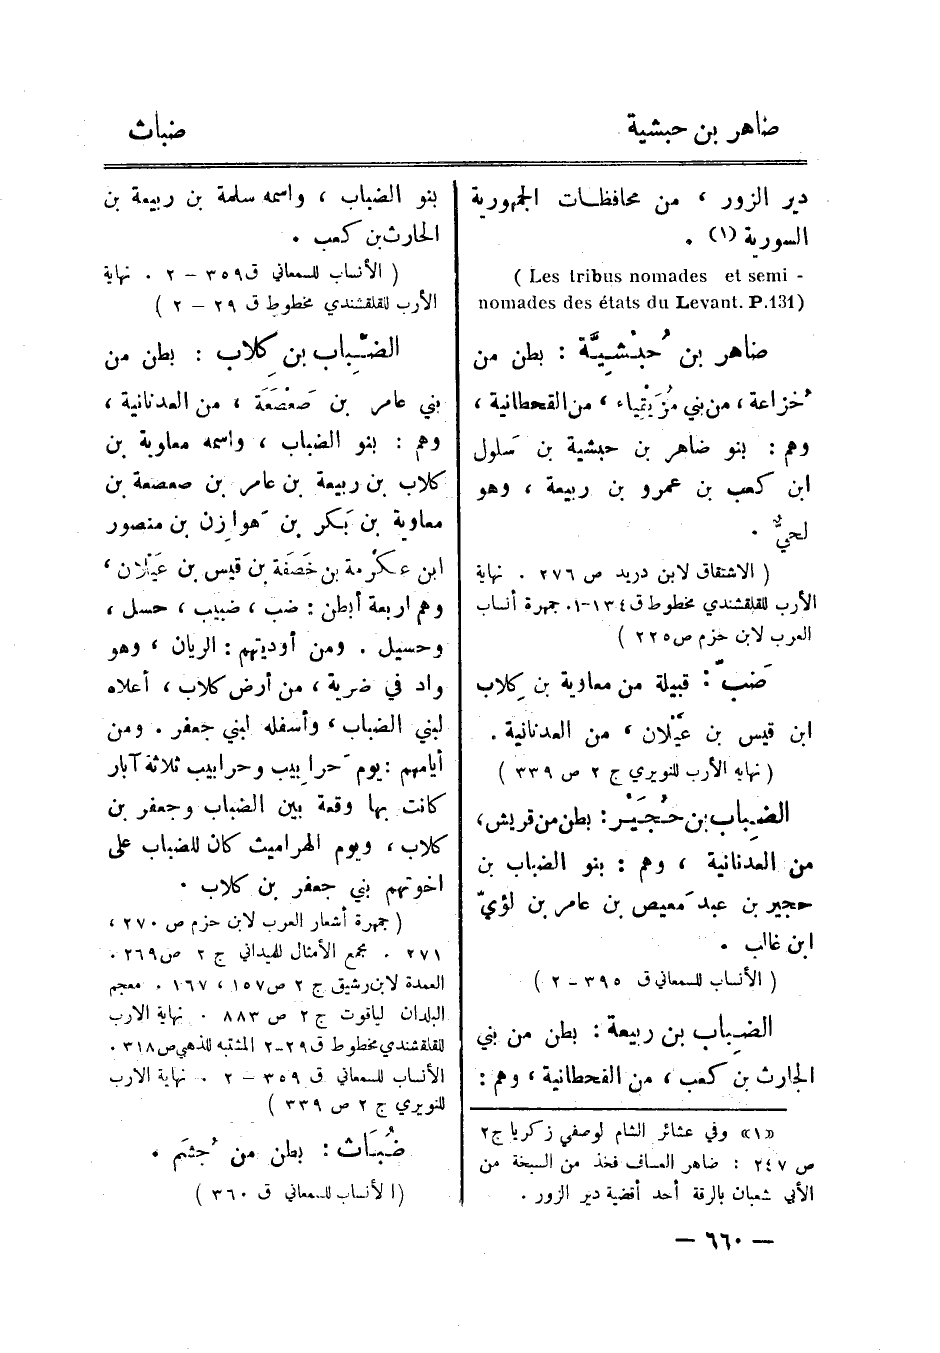 ضاهر بن حبشية
ضباث
دير الزور ، من محافظات الجمهورية
السورية (١) .
( Les tribus nomades et semi -
nomades des états du Levant. P.131)
ضاهر بن حُبْشِيَّة : بطن من
خُزاعة ، من بني مُزَيْقِياء ، من القحطانية ،
وهم : بنو ضاهر بن حبشية بن سَلول
ابن كعب بن عمرو بن ربيعة ، وهو
لحيٌّ .
( الاشتقاق لابن دريد ص ٢٧٦ . نهاية
الأرب للقلقشندي مخطوط ق ١٣٤-١. جمهرة أنساب
العرب لابن حزم ص ٢٢٥ )
ضَبّ : قبيلة من معاوية بن كِلاب
ابن قيس بن عَيْلان ، من العدنانية .
( نهاية الأرب للنويري ج ٢ ص ٣٣٩ )
الضِباب بن حُجَيْر : بطن من قريش ،
من العدنانية ، وهم : بنو الضباب بن
حجير بن عبد مَعيص بن عامر بن لؤيّ
ابن غالب .
( الأنساب للسمعاني ق ٣٩٥ – ٢ )
الضِباب بن ربيعة : بطن من بني
الحارث بن كعب ، من القحطانية ، وهم :
«١» وفي عشائر الشام لوصفي زكريا ج٢
ص ٢٤٧ : ضاهر العساف فخذ من السبخة من
الأبي شعبان بالرقة أحد أقضية دير الزور .
بنو الضباب ، واسمه سلمة بن ربيعة بن
الحارث بن كعب .
( الأنساب للسمعاني ق ٣٥٩ – ٢ . نهاية
الأرب للقلقشندي مخطوط ق ٢٩ – ٢ )
الضِّباب بن كِلاب : بطن من
بني عامر بن صَعْصَعَة ، من العدنانية ،
وهم : بنو الضباب ، واسمه معاوية بن
كلاب بن ربيعة بن عامر بن صعصعة بن
معاوية بن بَكر بن هَوازِن بن منصور
ابن عكْرمة بن خَصَفَة بن قيس بن عَيْلان ،
وهم اربعة أبطن : ضب ، ضبيب ، حسل ،
وحسيل . ومن أوديتهم : الريان ، وهو
واد في ضرية ، من أرض كلاب ، أعلاه
لبني الضباب ، وأسفله لبني جعفر . ومن
أيامهم : يوم حَرابيب وحرابيب ثلاثة آبار
كانت بها وقعة بين الضباب وجعفر بن
كلاب ، ويوم الهراميث كان للضباب على
اخوتهم بني جعفر بن كلاب .
( جمهرة أشعار العرب لابن حزم ص ٢٧٠ ،
٢٧١ . مجمع الأمثال للميداني ج ٢ ص ٢٦٩ .
العمدة لابن رشيق ج ٢ ص ١٥٧ ، ١٦٧ . معجم
البلدان لياقوت ج ٢ ص ٨٨٣ . نهاية الارب
للقلقشندي مخطوط ق ٢٩-٢ المشتبه للذهبي ص ٣١٨ .
الأنساب للسمعاني ق ٣٥٩ – ٢ . نهاية الارب
للنويري ج ٢ ص ٣٣٩ )
ضُبَاث : بطن من جُثَم .
(الأنساب للسمعاني ق ٣٦٠ )
— ٦٦٠ —